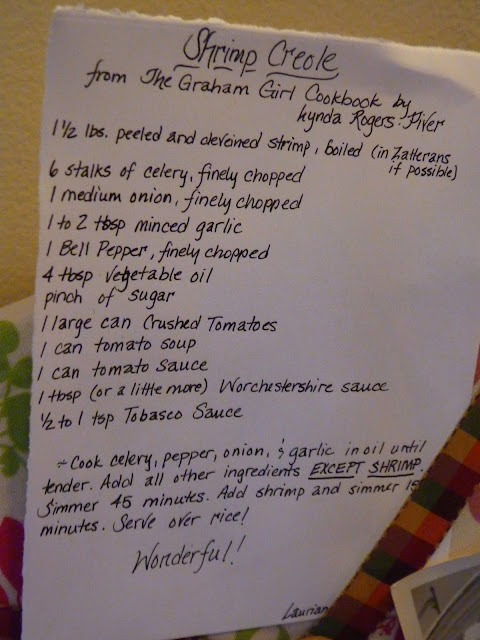 Shrimp Creole
from The Graham Girl Cookbook by
Lynda Rogers
1 1/2 lbs. peeled and deveined shrimp, boiled (in Zatterans
if possible)
6 stalks of celery, finely chopped
1 medium onion, finely chopped
1 to 2 tbsp minced garlic
1 Bell Pepper, finely chopped
4 tbsp vegetable oil
pinch of sugar
1 large can Crushed Tomatoes
1 can tomato soup
1 can tomato sauce
1 tbsp (or a little more) Worchestershire sauce
1/2 to 1 tsp Tobasco Sauce
÷ Cook celery, pepper, onion, & garlic in oil until
tender. Add all other ingredients EXCEPT SHRIMP.
Simmer 45 minutes. Add shrimp and simmer 15
minutes. Serve over rice!
Wonderful!
Laurian